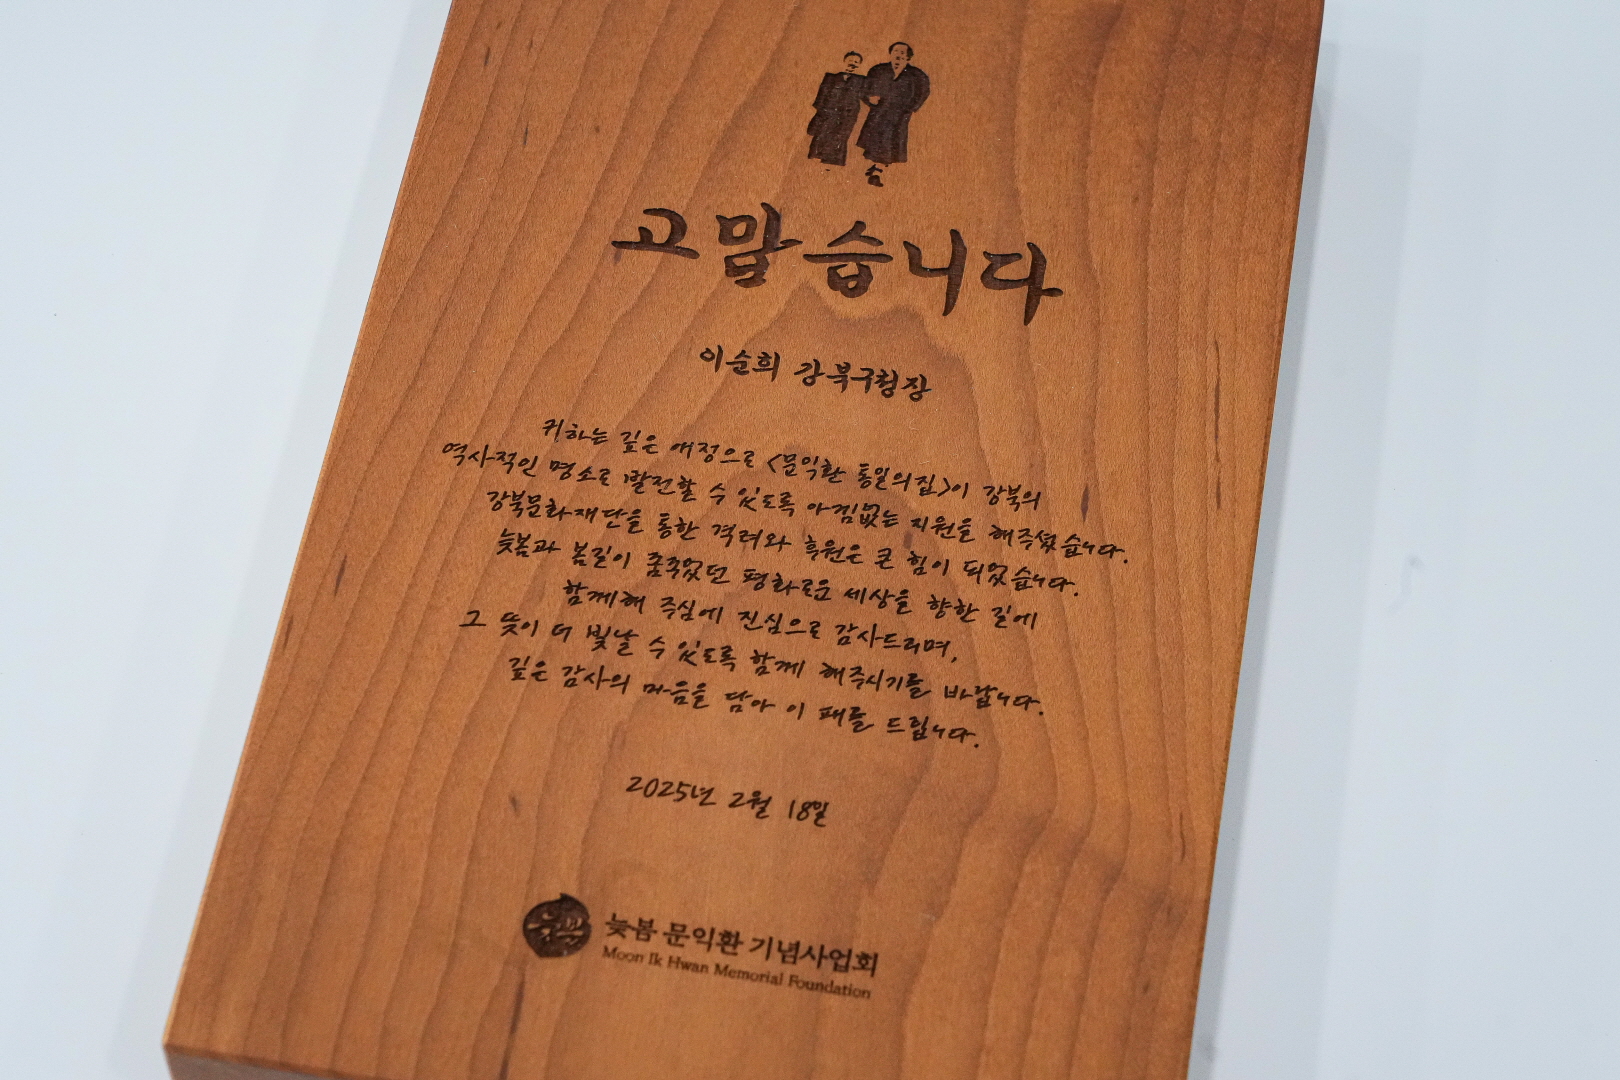 고맙습니다
이순희 강북구청장
귀하는 깊은 애정으로 <문익환 통일의집>이 강북의
역사적인 명소로 발전할 수 있도록 아낌없는 지원을 해주셨습니다.
강북문화재단을 통한 격려와 후원은 큰 힘이 되었습니다.
늦봄과 봄길이 꿈꾸었던 평화로운 세상을 향한 길에
함께해 주심에 진심으로 감사드리며,
그 뜻이 더 빛날 수 있도록 함께 해주시기를 바랍니다.
깊은 감사의 마음을 담아 이 패를 드립니다.
2025년 2월 18일
늦봄
늦봄 문익환 기념사업회
Moon Ik Hwan Memorial Foundation